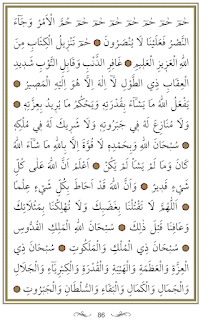 حٰمٓ حٰمٓ حٰمٓ حٰمٓ حٰمٓ حٰمٓ حٰمٓ حُمَّ الْاَمْرُ وَجَٓاءَ
النَّصْرُ فَعَلَيْنَا لَا يُنْصَرُونَ حٰمٓ تَنْزِيلُ الْكِتَابِ مِنَ
اللّٰهِ الْعَزِيزِ الْعَلِيمِ غَافِرِ الذَّنْبِ وَقَابِلِ التَّوْبِ شَدِيدِ
الْعِقَابِ ذِي الطَّوْلِ لَٓا اِلٰهَ اِلَّا هُوَ اِلَيْهِ الْمَصِيرُ
يَفْعَلُ اللّٰهُ مَا يَشَٓاءُ بِقُدْرَتِهِ وَيَحْكُمُ مَا يُرِيدُ بِعِزَّتِهِ
وَلَا مُنَازِعَ لَهُ فِي جَبَرُوتِهِ وَلَا شَرِيكَ لَهُ فِي مُلْكِهِ
سُبْحَانَ اللّٰهِ وَبِحَمْدِهِ لَا قُوَّةَ اِلَّا بِاللّٰهِ مَا شَٓاءَ اللّٰهُ
كَانَ وَمَا لَمْ يَشَأْ لَمْ يَكُنْ اَعْلَمُ اَنَّ اللّٰهَ عَلٰى كُلِّ
شَيْءٍ قَدِيرٌ وَاَنَّ اللّٰهَ قَدْ اَحَاطَ بِكُلِّ شَيْءٍ عِلْمًا
اَللّٰهُمَّ لَا تَقْتُلْنَا بِغَضَبِكَ وَلَا تُهْلِكْنَا بِمَثُلَاتِكَ
وَعَافِنَا قَبْلَ ذٰلِكَ سُبْحَانَ اللّٰهِ الْمَلِكِ الْقُدُّوسِ
سُبْحَانَ ذِي الْمُلْكِ وَالْمَلَكُوتِ سُبْحَانَ ذِي
الْعِزَّةِ وَالْعَظَمَةِ وَالْهَيْبَةِ وَالْقُدْرَةِ وَالْكِبْرِيَٓاءِ وَالْجَلَالِ
وَالْجَمَالِ وَالْكَمَالِ وَالْبَقَٓاءِ وَالسُّلْطَانِ وَالْجَبَرُوتِ
86